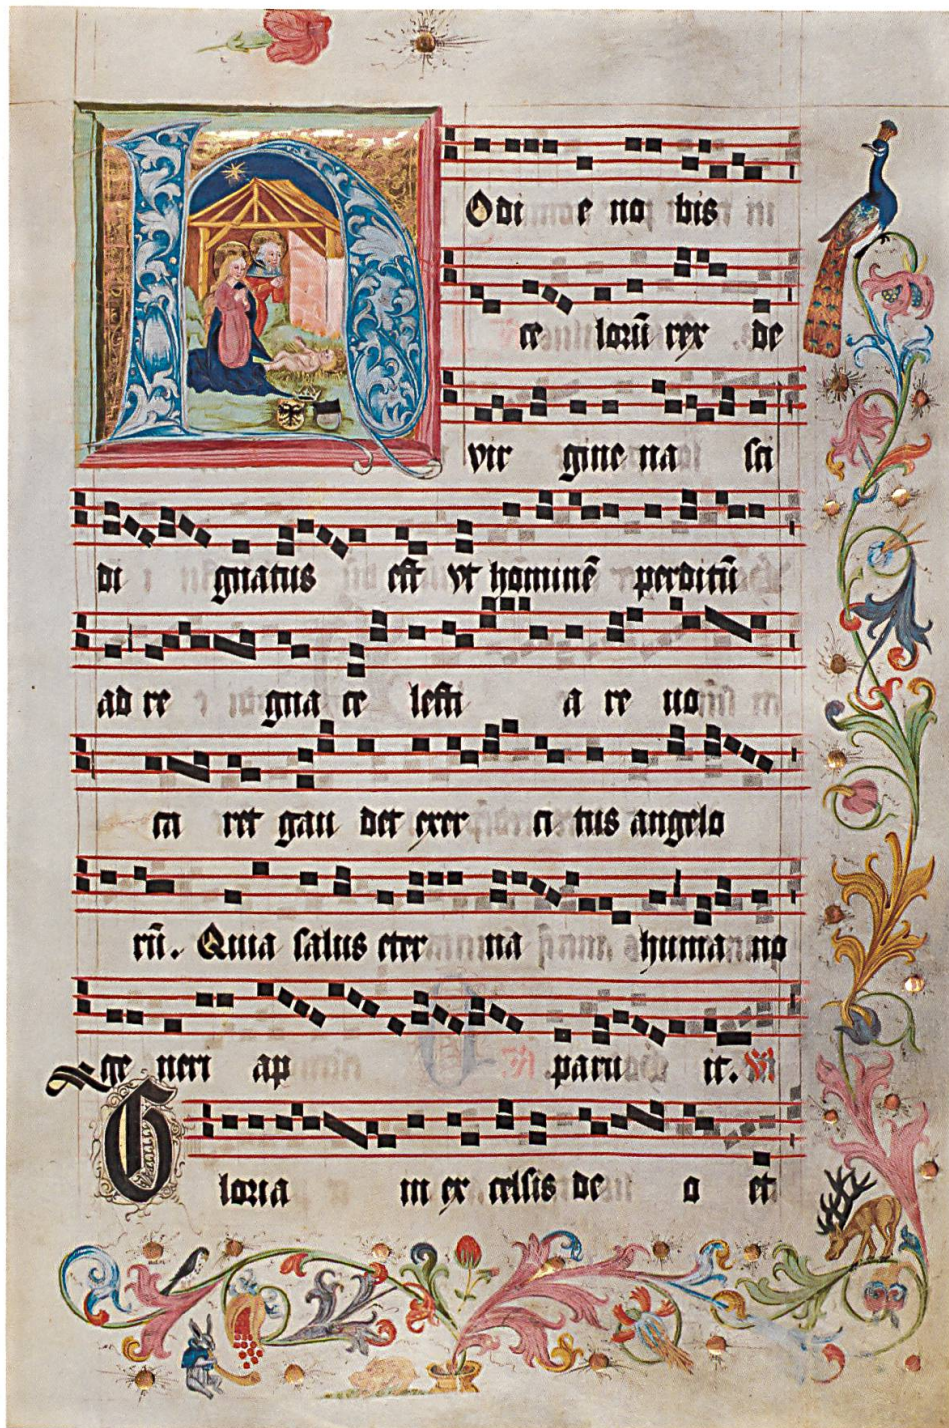 Hodi e no bis
ce lorū rex de
vir gine na sci
di gnatus est vt hōminē perditū
ad re gna ce lesti a re uo
ca ret gau det exer ci tus angelo
rū. Quia salus eter na humano
ge neri ap paru it. ℣
Gloria in ex celsis de o et